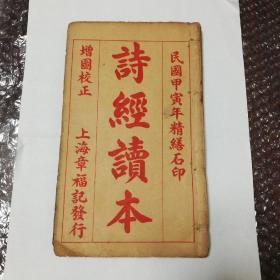 民國甲寅年精繕石印
詩經讀本
增圖校正
上海章福記發行